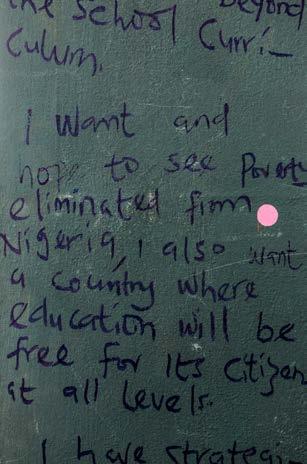 the School beyond
Curri-
Culum.
I Want and
hope to see Poverty
eliminated from
Nigeria, i also want
a country where
education will be
free for Its Citizen
at all Levels.
I have strategi